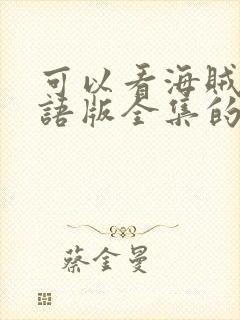 可以看海贼
語版全集的
蔡金曼